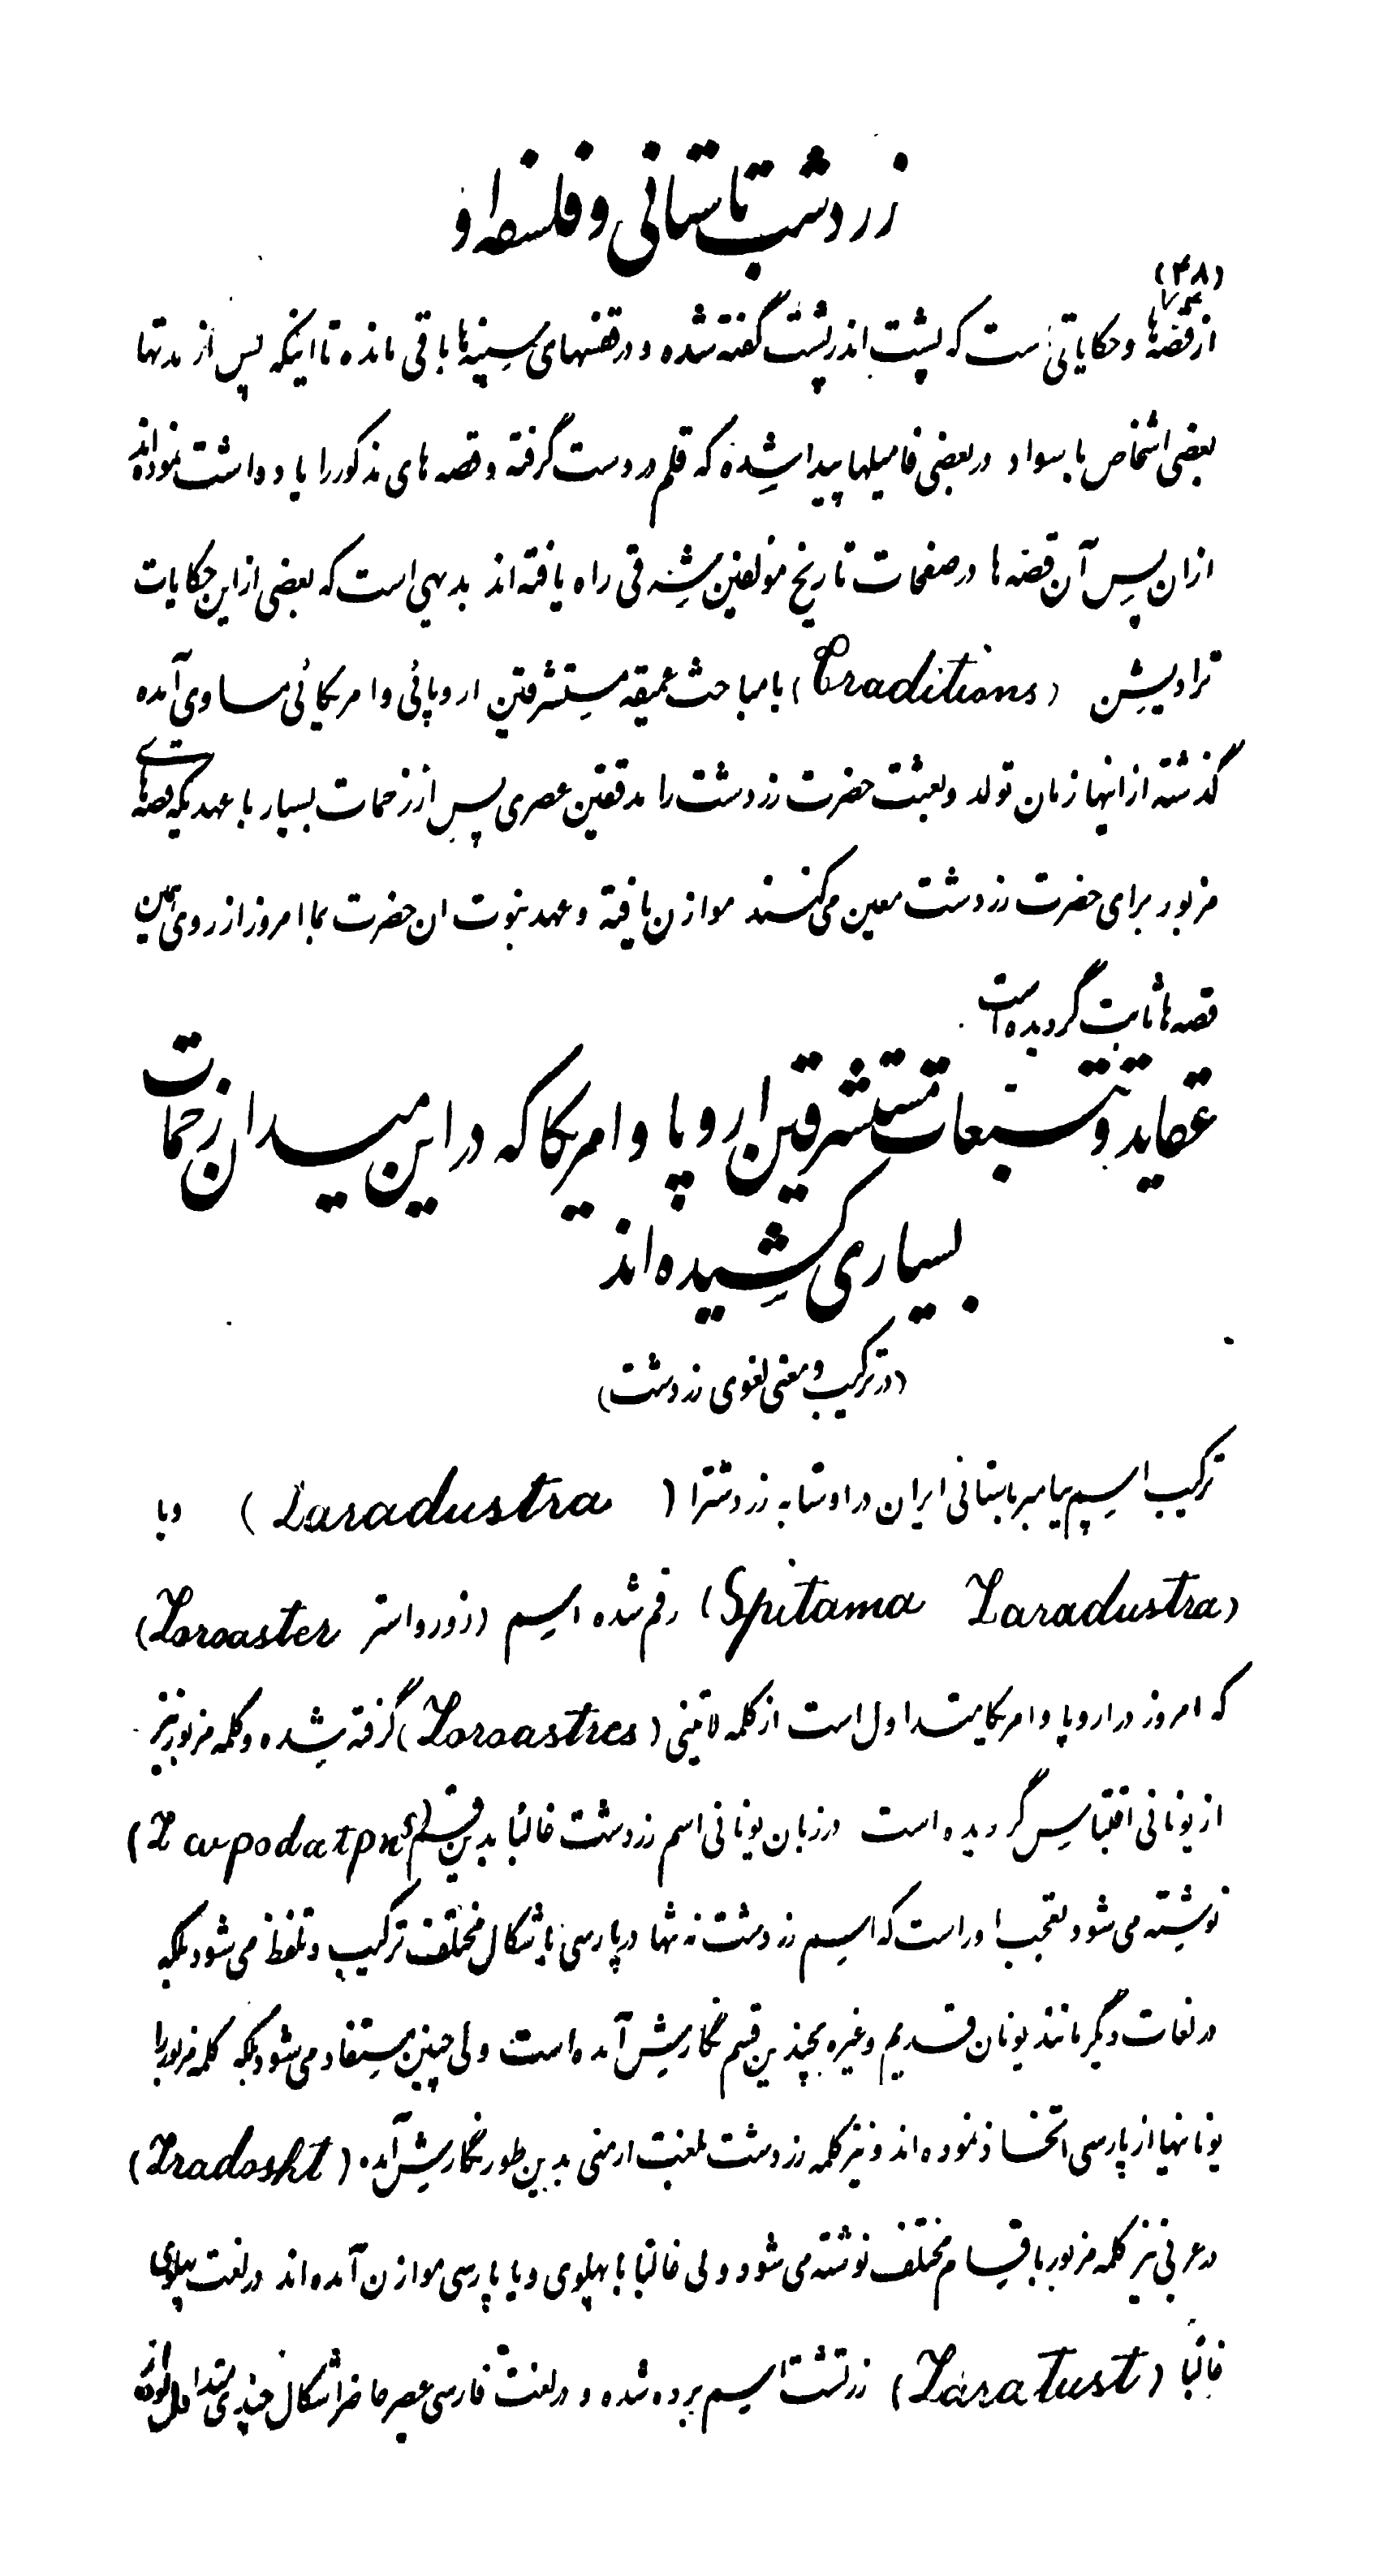 زردشت باستانی و فلسفه او
(۴۸)
از قصه‌ها و حکایاتی است که پشت اندر پشت گفته شده و در قفسهای سینه‌ها باقی مانده تا اینکه پس از مدتها
بعضی اشخاص با سواد در بعضی فامیلها پیدا شده که قلم در دست گرفته و قصه های مذکور را یادداشت نموده‌اند
ازان پس آن قصه ها در صفحات تاریخ مؤلفین مشرقی راه یافته اند بدیهی است که بعضی از این حکایات
ترادیشن (Traditions) با مباحث عمیقه مستشرقین اروپائی و امریکائی مساوی آمده
گذشته از اینها زمان تولد و بعثت حضرت زردشت را مدققین عصری پس از زحمات بسیار با عهدیکه قصه‌های
مزبور برای حضرت زردشت معین می‌کنند موازن یافته و عهد نبوت ان حضرت بما امروز از روی همین
قصه ها ثابت گردیده است
عقاید و تتبعات مستشرقین اروپا و امریکا که در این میدان زحمات
بسیاری کشیده اند
(در ترکیب و معنی لغوی زردشت)
ترکیب اسم پیامبر باستانی ایران در اوستا به زردشترا (Zaradustra) و یا
(Spitama Zaradustra) رقم شده اسم (زورواستر Zoroaster)
که امروز در اروپا و امریکا متداول است از کلمه لاتینی (Zoroastres) گرفته شده و کلمه مزبور نیز
از یونانی اقتباس گردیده است در زبان یونانی اسم زردشت غالباً بدین قسم
نوشته می شود تعجب اور است که اسم زردشت نه تنها در پارسی باشکال مختلف ترکیب و تلفظ می شود بلکه
در لغات دیگر مانند یونان قدیم و غیره بچندین قسم نگارش آمده است ولی چنین مستفاد می شود بلکه کلمه مزبور را
یونانیها از پارسی اتخاذ نموده اند و نیز کلمه زردشت بلغت ارمنی بدین طور نگارش آمده (Zradosht)
در عربی نیز کلمه مزبور باقسام مختلف نوشته می شود ولی غالباً با پهلوی و یا پارسی موازن آمده اند در لغت پهلوی
غالباً (Zaratust) زرتشت اسم برده شده و در لغت فارسی عصر حاضر اشکال چندی متداول بوده